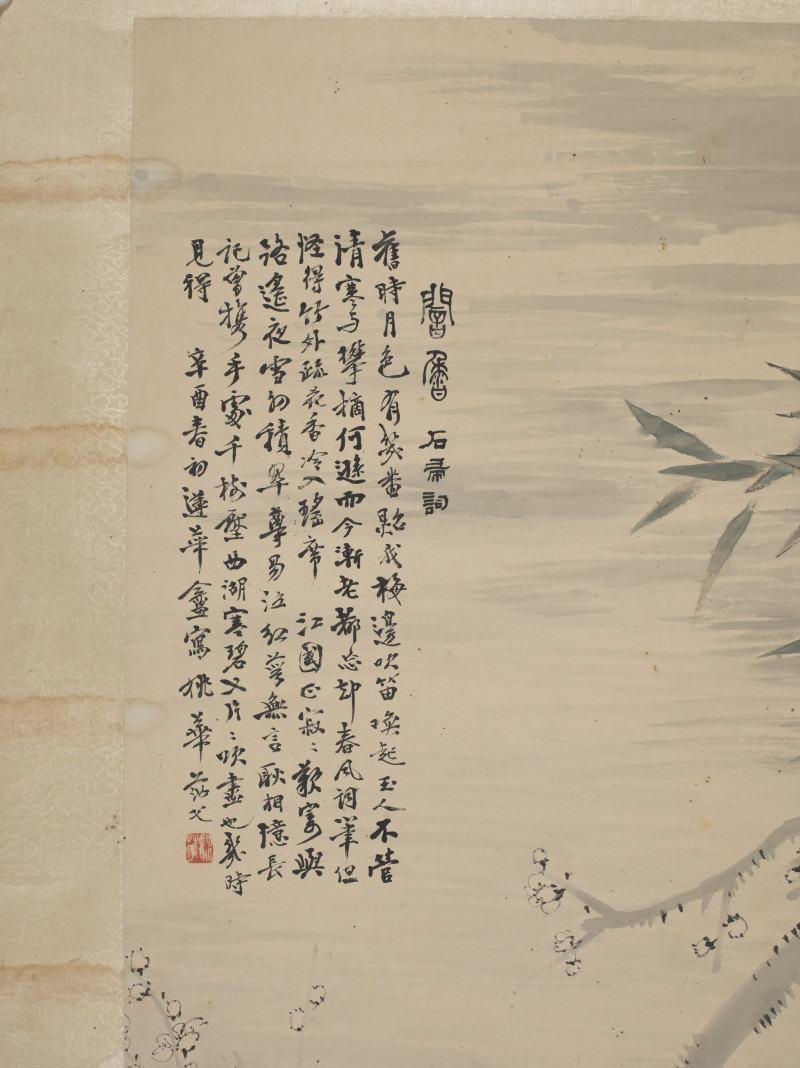 闇香 石帚詞
舊時月色有幾番照我梅邊吹笛喚起玉人不管
清寒与攀摘何遜而今漸老都忘却春風詞筆但
怪得竹外疏花香冷入瑤席 江國正寂〻歎寄與
路遙夜雪初積翠尊易泣紅萼無言耿相憶長
記曾攜手處千樹壓西湖寒碧又片〻吹盡也幾時
見得 辛酉春初蓮華盦寫姚華茫父